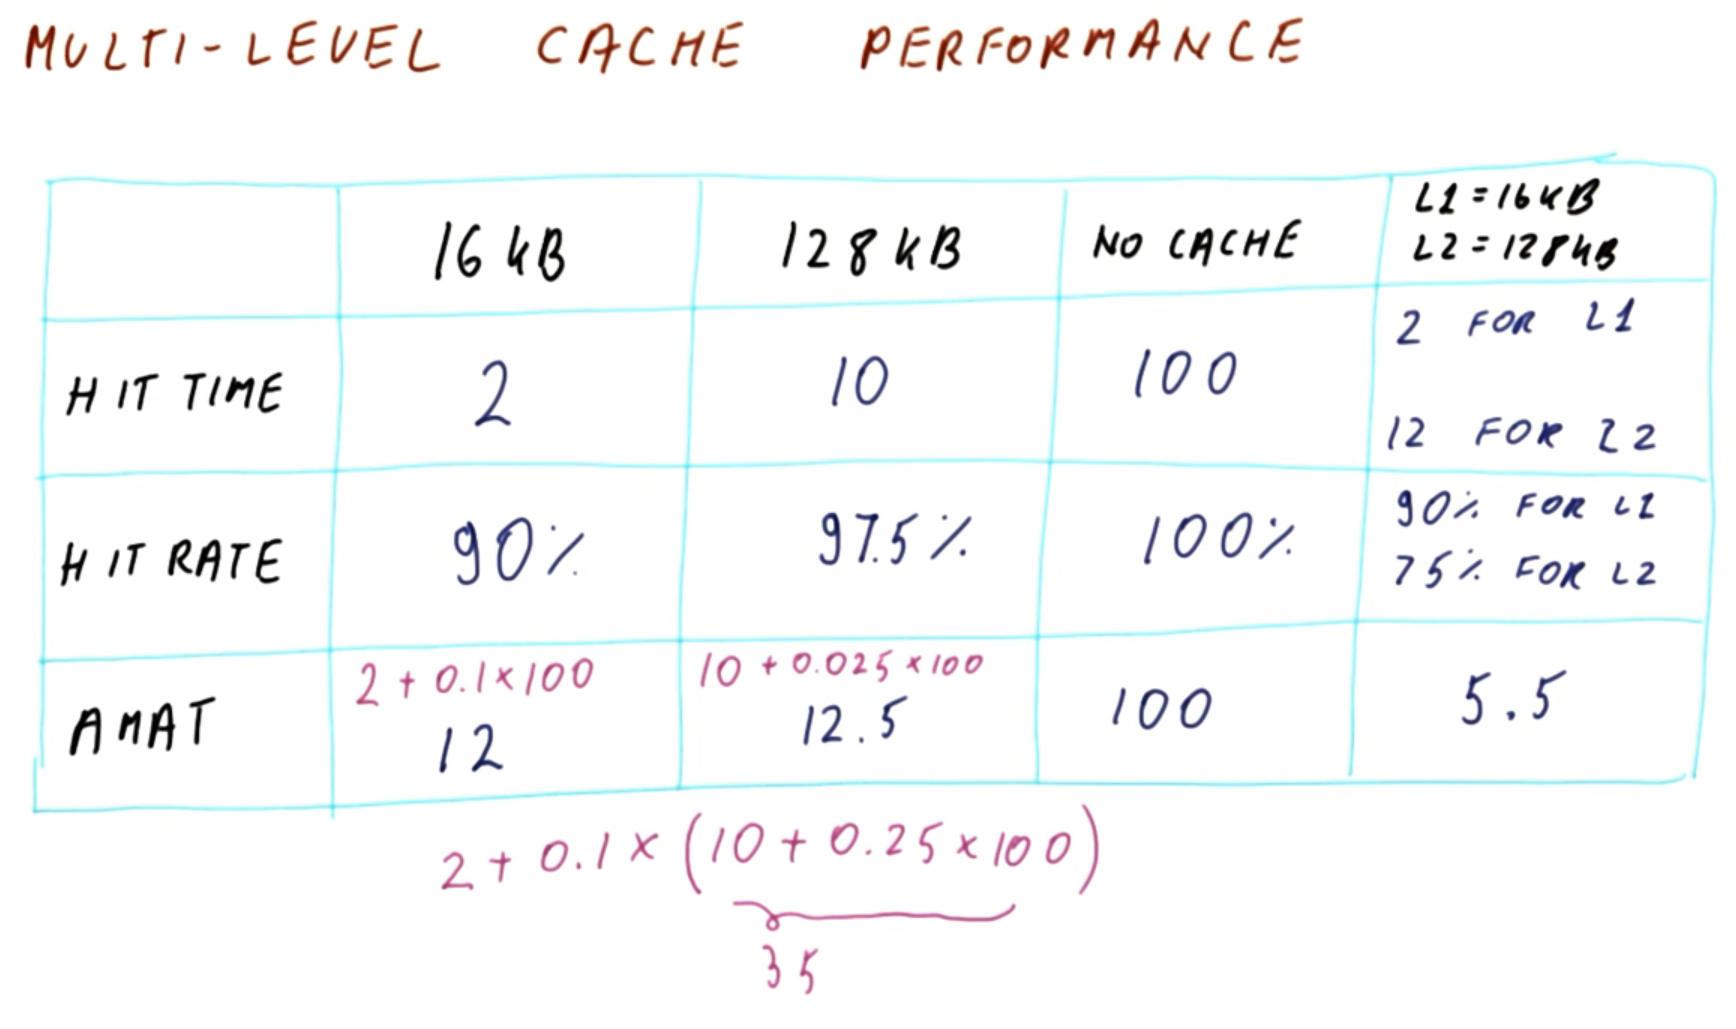 MULTI-LEVEL CACHE PERFORMANCE
16 kB 128 kB NO CACHE L1 = 16 kB
L2 = 128 kB
HIT TIME 2 10 100 2 FOR L1
12 FOR L2
HIT RATE 90% 97.5% 100% 90% FOR L1
75% FOR L2
2 + 0.1 × 100 10 + 0.025 × 100
AMAT 12 12.5 100 5.5
2 + 0.1 × (10 + 0.25 × 100)
35